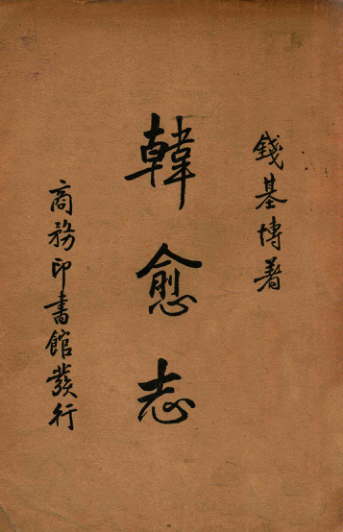 錢基博著
韓愈志
商務印書館發行